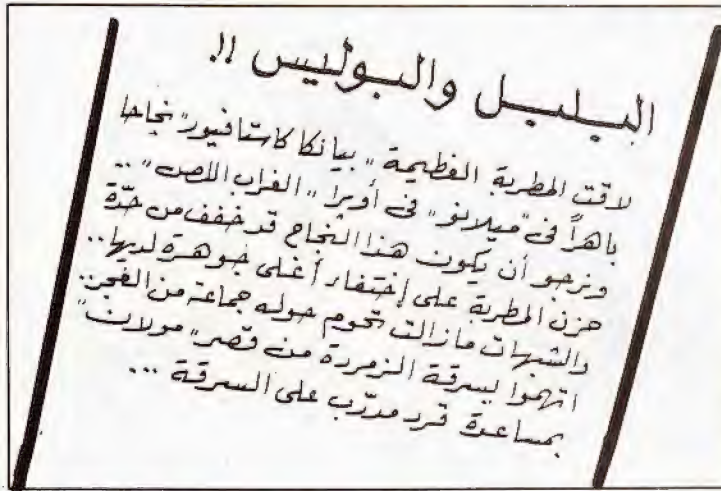 البلبل والبوليس !!
لاقت المطربة العظيمة "بيانكا كاستافيور" نجاحا
باهراً فى "ميلانو" فى أوبرا "الغراب اللص" ..
ونرجو أن يكون هذا النجاح قد خفف من حدّة
حزن المطربة على إختفاء أغلى جوهرة لديها ..
والشبهات مازالت تحوم حول جماعة من الغجر ..
اتهموا بسرقة الزمردة من قصر "مولان"
بمساعدة قرد مدرّب على السرقة ...